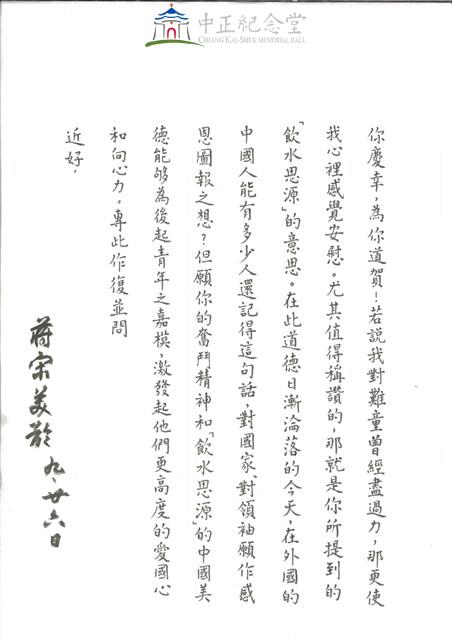 中正紀念堂
CHIANG KAI-SHEK MEMORIAL HALL
你慶幸,為你道賀!若說我對難童曾經盡過力,那更使
我心裡感覺安慰。尤其值得稱讚的,那就是你所提到的
「飲水思源」的意思。在此道德日漸淪落的今天,在外國的
中國人能有多少人還記得這句話,對國家、對領袖願作感
恩圖報之想?但願你的奮鬥精神和「飲水思源」的中國美
德能够為後起青年之嘉模,激發起他們更高度的愛國心
和向心力。專此作復並問
近好,
蔣宋美齡 九、廿六日